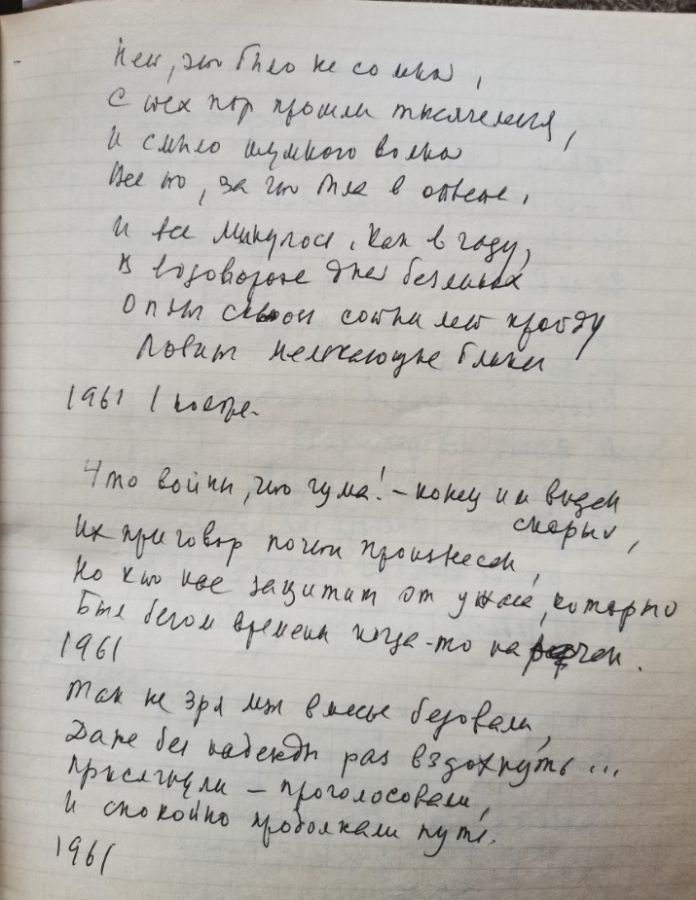 Нет, это было не со мной,
С тех пор прошли тысячелетья,
И смыло шумною волной
Все то, за что была в ответе.
И все минулось, как в году,
В водовороте дней безликих
Опять свою сотни лет правду
Ловит нелгающие блики
1961 1 ноября.
Что войны, что чума! – конец им виден
скорый,
Их приговор почти произнесен,
Но кто нас защитит от ужаса, который
Был бегом времени когда-то наречен.
1961
Так не зря мы вместе бедовали,
Даже без надежды раз вздохнуть...
Присягнули – проголосовали,
И спокойно продолжали путь.
1961